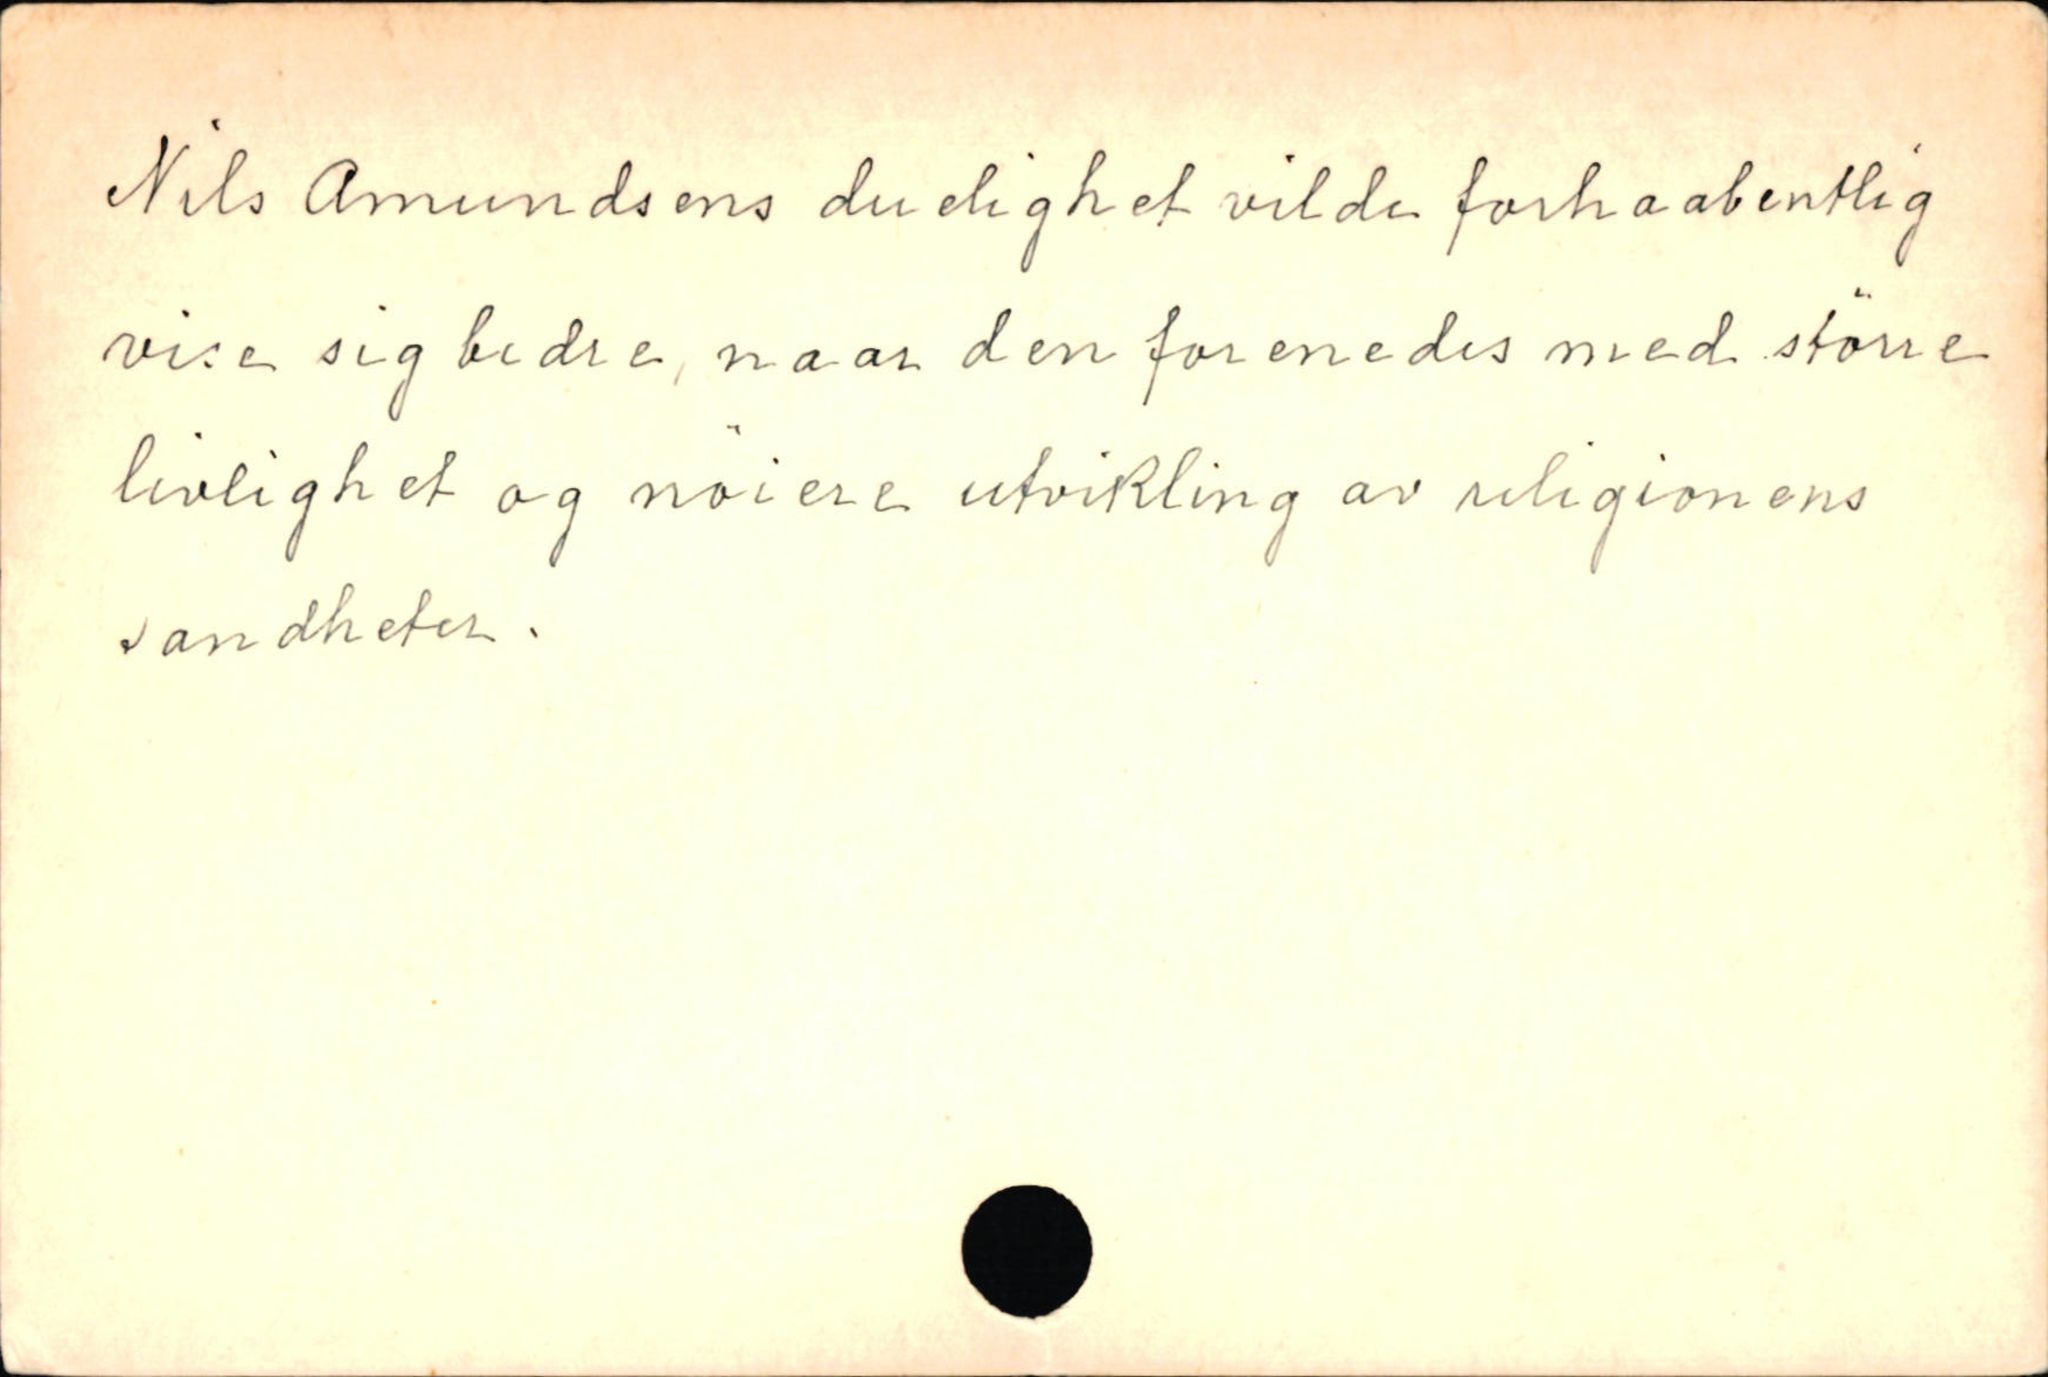 Nils Amundsens duelighet vilde forhaabentlig
vise sig bedre, naar den forenedes med större
livlighet og nöiere utvikling av religionens
sandheter.